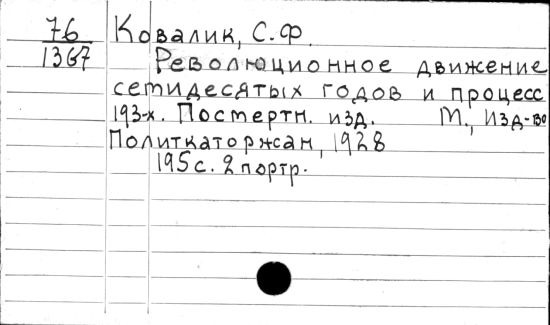 76 Ковалик, С.Ф.
1367 Революционное движение
семидесятых годов и процесс
193-х. Постертн. изд. М., Изд-во
Политкаторжан, 1928
195с. 2 портр.